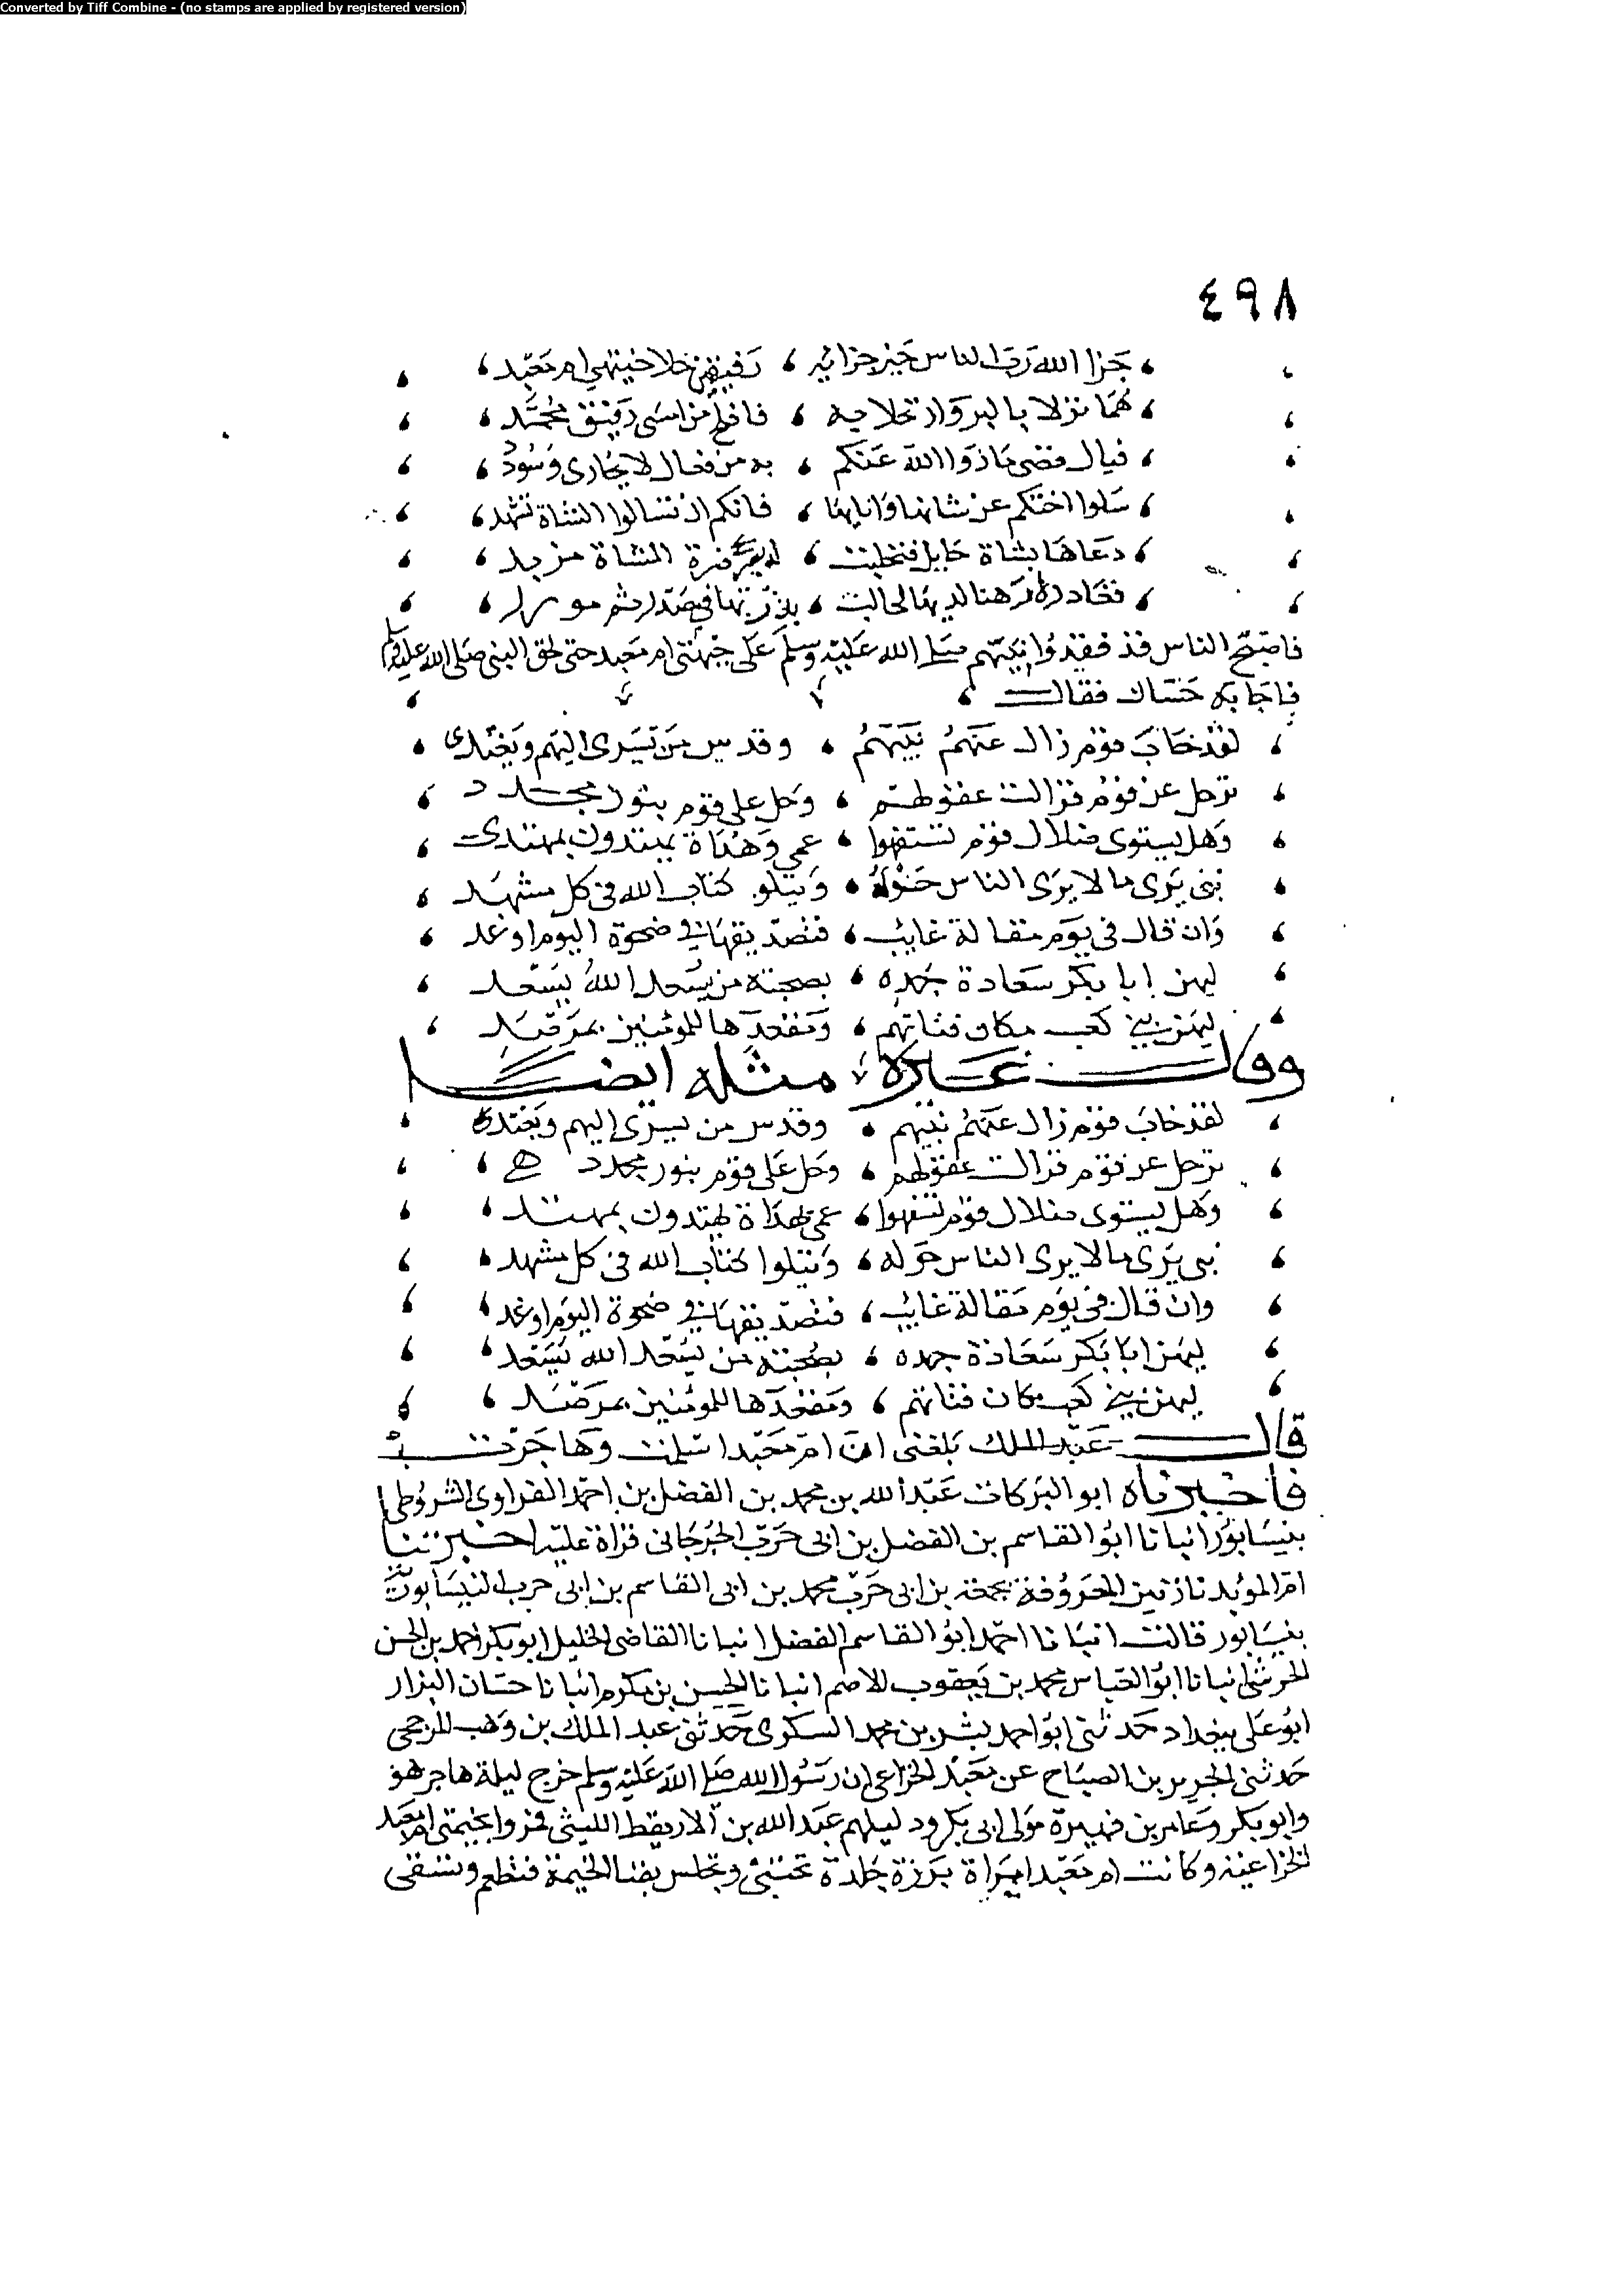 Converted by Tiff Combine - (no stamps are applied by registered version)
٤٩٨
جزا الله رب الناس خير جزائه ، رفيقين حلا خيمتي ام معبد ،
هما نزلا بالبر وارتحلا به ، فافلح من امسى رفيق محمد ،
فيال قصى ما زوا الله عنكم ، به من فعال لا يجارى وسودد ،
سلوا اختكم عن شاتها وانايها ، فانكم ان تسالوا الشاة تشهد ،
دعاها بشاة حايل فتحلبت ، له بصريح ضرة الشاة مزبد ،
فغادره رهنا لديها لحالب ، بدرتها في مصدر ثم مورد ،
فاصبح الناس قد فقدوا نبيهم صلى الله عليه وسلم على خيمتى ام معبد حتى لحق النبى صلى الله عليه وسلم
فاجابه حسان فقال
لقد خاب قوم زال عنهم نبيهم ، وقدس من يسرى اليهم ويغتدى ،
ترحل عن قوم فزالت عقولهم ، وحل على قوم بنور مجدد ،
وهل يستوى ضلال قوم تسفهوا ، عمى وهداة يهتدون بمهتدى ،
نبى يرى ما لا يرى الناس حوله ، ويتلو كتاب الله فى كل مشهد ،
وان قال فى يوم مقالة غايب ، فتصديقها في ضحوة اليوم او غد ،
ليهن ابا بكر سعادة جده ، بصحبته من يسعد الله يسعد ،
ليهن بني كعب مكان فتاتهم ، ومقعدها للمومنين بمرصد ،
وقال غيره ، مثله ايضا
لقد خاب قوم زال عنهم نبيهم ، وقدس من يسرى اليهم ويغتدى
ترحل عن قوم فزالت عقولهم ، وحل على قوم بنور مجدد ،
وهل يستوى ضلال قوم تسفهوا ، عمى وهداة يهتدون بمهتد ،
نبى يرى ما لا يرى الناس حوله ، ويتلوا كتاب الله فى كل مشهد ،
وان قال فى يوم مقالة غايب ، فتصديقها في ضحوة اليوم او غد ،
ليهن ابا بكر سعادة جده ، بصحبته من يسعد الله يسعد ،
ليهن بني كعب مكان فتاتهم ، ومقعدها للمومنين بمرصد ،
قال عبد الملك بلغنى ان ام معبد اسلمت وهاجرت
فاخبرناه ابو البركات عبد الله بن محمد بن الفضل بن احمد الفراوى الشروطى
بنيسابور انبانا ابو القاسم بن الفضل بن ابى حرب الجرجانى قراة عليه اخبرتنا
ام المويد نازنين المعروفة بجمعة بن ابى حرب محمد بن ابى القاسم بن ابى حرب النيسابورية
بنيسابور قالت انبانا احمد ابو القاسم الفضل انبانا القاضى الخليل ابو بكر احمد بن الحسن
الحرشى انبانا ابو العباس محمد بن يعقوب الاصم انبانا الحسن بن مكرم انبانا حسان البزار
ابو على ببغداد حدثنى ابو احمد بشر بن محمد السكرى حدثنى عبد الملك بن وهب المذحجى
حدثنى الحر بن الصياح عن معبد الخزاعى ان رسول الله صلى الله عليه وسلم خرج ليلة هاجر هو
وابو بكر وعامر بن فهيرة مولى ابى بكر ودليلهم عبد الله بن الاريقط الليثى فمروا بخيمتى ام معبد
الخزاعية وكانت ام معبد امراة برزة جلدة تحتبى وتجلس بفنا الخيمة فتطعم وتسقى